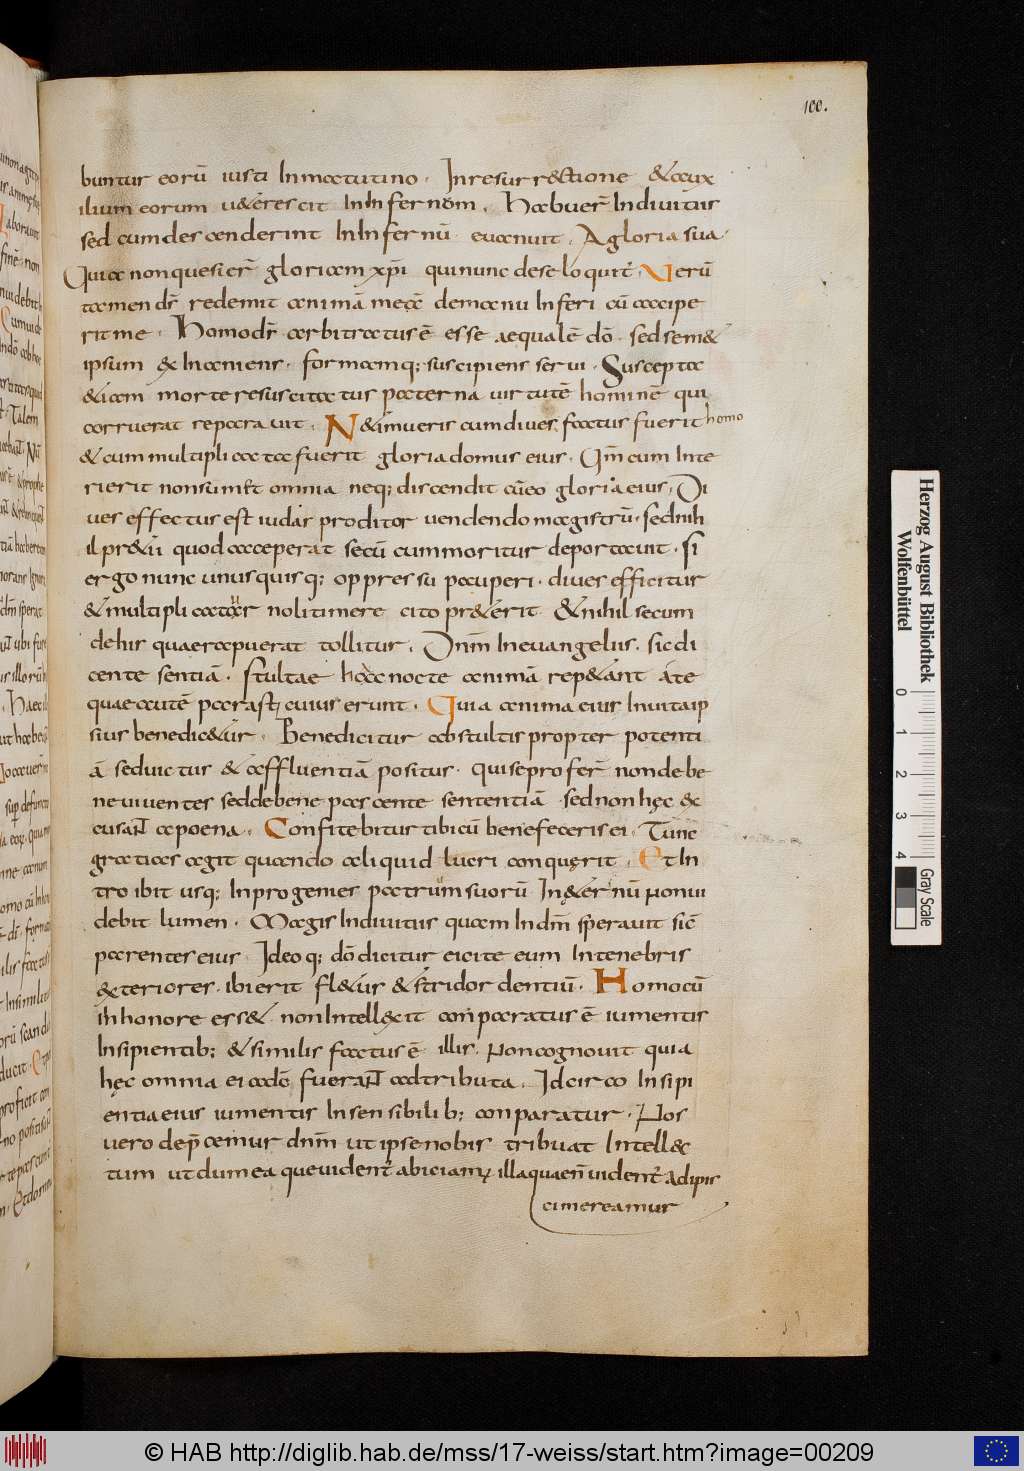 100.
buntur eorū iusti In matutino. In resurrectione & aux
ilium eorum u&erescit In Infernom. Habuer̄ Indiuitiis
sed cum descenderint In Infernū euanuit. A gloria sua.
Quia non quesier̄ gloriam xp̄i qui nunc dese loquit̄. Verū
tamen ds̄ redemit animā meā demanu Inferi cū accipe
rit me. Homo ds̄ arbitratus ē esse aequalē dō. sed sem&
ipsum exInaniens. formamq; suscipiens serui. Suscepta
&iam morte resuscitatus paterna uirtutē hominē qui
corruerat reparauit. Ne timueris cum diues factus fuerit homo
& cum multiplicata fuerit gloria domus eius. Qm̄ cum Inte
rierit non sum& omnia neq; discendit cū eo gloria eius. Di
ues effectus est iudas proditor uendendo magistrū. sed nih
il pr&ii quod acceperat secū cum moritur deportauit. si
ergo nunc unusquisq; oppressu pauperi. diues efficitur
& multiplicatur nolitimere cito pr&erit & nihil secum
dehis quae rapuerat tollitur. Dnm̄ In euangeliis. sic di
cente sentiā. stultae hac nocte animā rep&ant a te
quae autē parasti cuius erunt. Quia anima eius In uita ip
sius benedic&ur. Benedicitur ab stultis propter potenti
ā seductus & affluentiā positus. qui se profer̄ non de be
ne uiuentes sed de bene pascente sententiā sed non hęc ex
cusant a poena. Confitebitur tibi cū benefeceris ei. Tunc
gratias agit quando aliquid lucri conquęrit. Et In
troibit usq; In progenies patrum suorū In&ernū non ui
debit lumen. Magis Indiuitiis quam In dm̄ sperauit sic̄
parentes eius Ideoq; dō dicitur eicite eum In tenebris
exteriores. ibi erit fl&us & stridor dentiū. Homo cū
In honore ess& non Intellexit conparatus ē iumentis
Insipientib; & similis factus ē illis. Non cognouit quia
hęc omnia ei a dō fuerant adtributa. Idcirco Insipi
entia eius iumentis Insensibilib; conparatur. Nos
uero dep̄cemur dnm̄ ut ipse nobis tribuat Intellec
tum ut dum ea que uident̄ abiciamꝰ illa quae n̄ uident̄ adipis
ci mereamur
Herzog August Bibliothek
Wolfenbüttel
0 1 2 3 4
Gray Scale
© HAB http://diglib.hab.de/mss/17-weiss/start.htm?image=00209